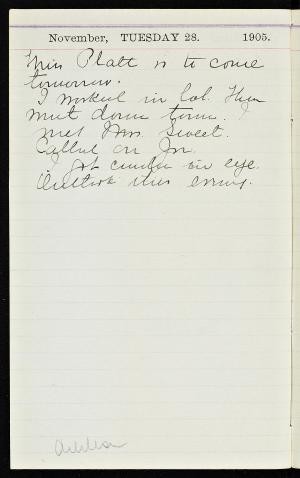 November, TUESDAY 28. 1905.
Miss Platt is to come
tomorrow.
I worked in Lab. Then
went down town. I
met Mrs. Sweet.
Called on
I got cinder in eye.
this evening.